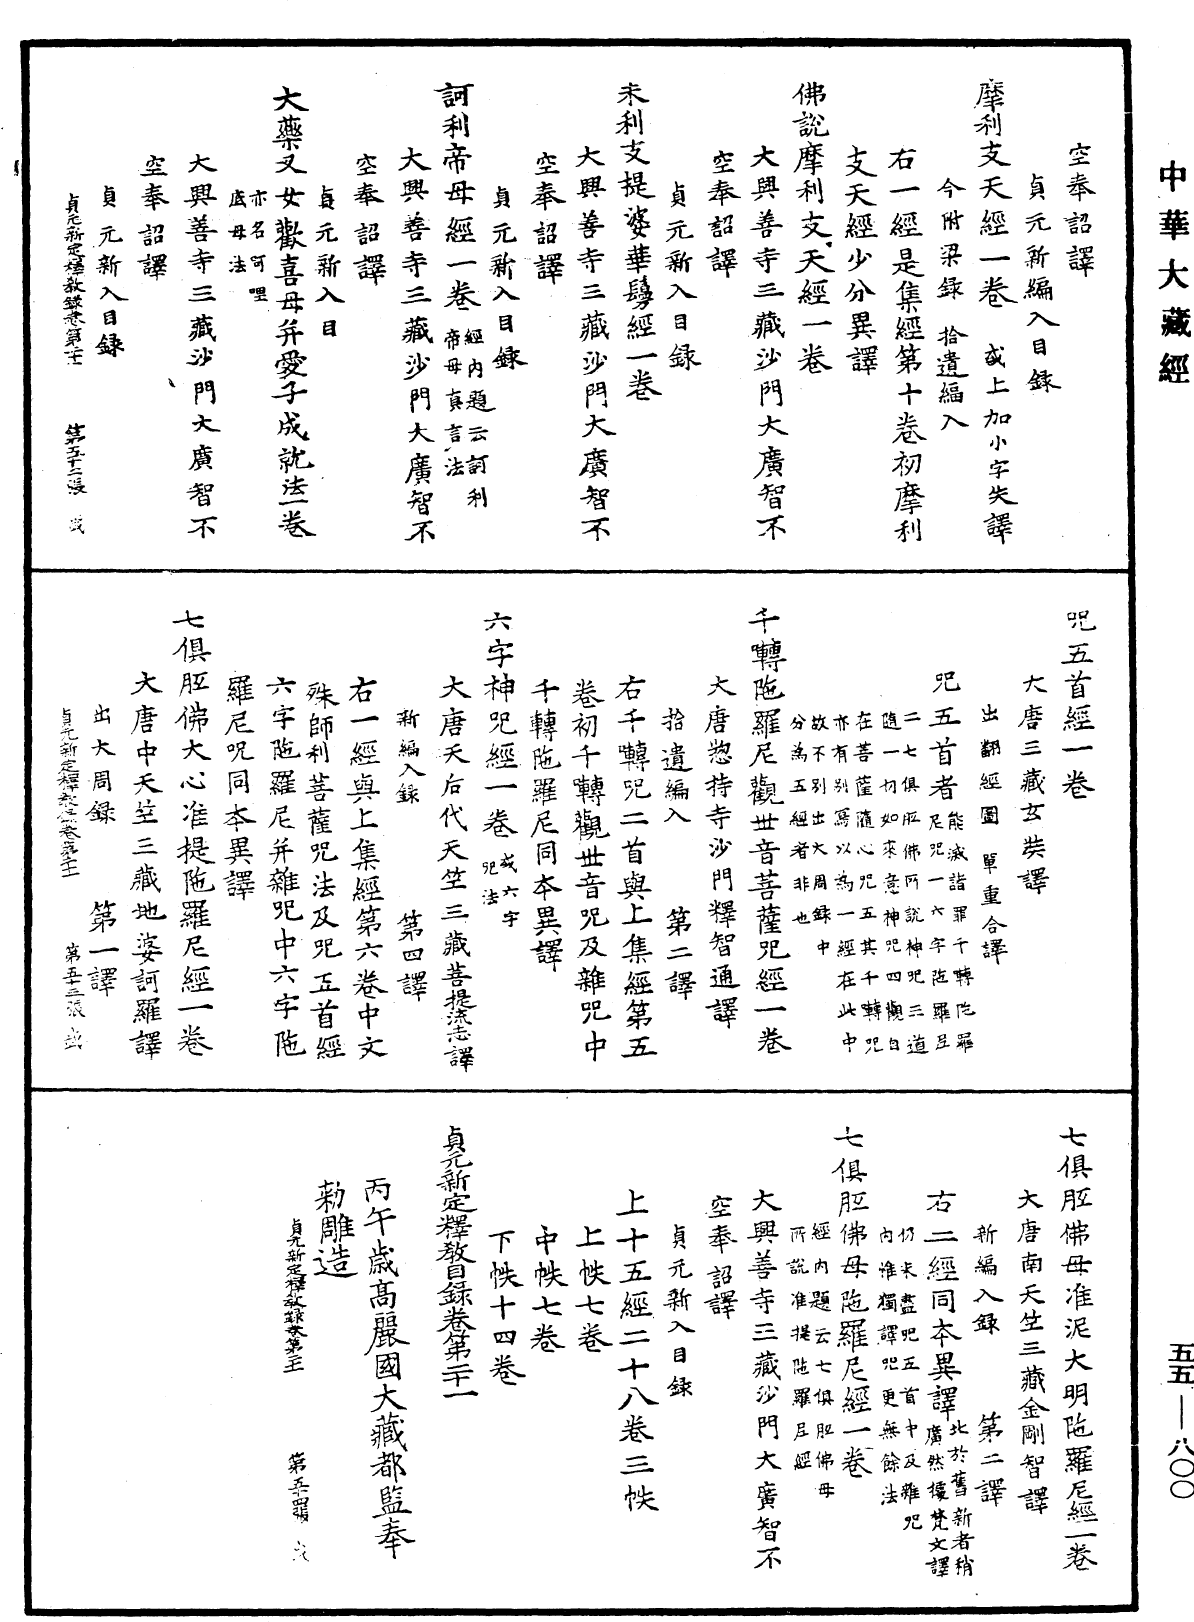 中華大藏經
空奉詔譯
貞元新編入目録
摩利支天經一卷 或上加小字失譯
今附梁録 拾遺編入
右一經是集經第十卷初摩利
支天經少分異譯
佛説摩利支天經一卷
大興善寺三藏沙門大廣智不
空奉詔譯
貞元新入目録
末利支提婆華鬘經一卷
大興善寺三藏沙門大廣智不
空奉詔譯
貞元新入目録
訶利帝母經一卷 經内題云訶利
帝母真言法
大興善寺三藏沙門大廣智不
空奉詔譯
貞元新入目
大藥叉女歡喜母并愛子成就法一卷
亦名訶哩
底母法
大興善寺三藏沙門大廣智不
空奉詔譯
貞元新入目録
貞元新定釋教録卷第二十一 第五十二張 或
呪五首經一卷
大唐三藏玄奘譯
出翻經圖 單重合譯
呪五首者 能滅諸罪千轉陁羅
尼呪一六字陁羅尼
二七俱胝佛所説神呪三道
隨一切如來意神呪四觀自
在菩薩隨心呪五其千轉呪
亦有别寫以為一經在此中
故不别出大周録中
分為五經者非也
千囀陁羅尼觀世音菩薩呪經一卷
大唐揔持寺沙門釋智通譯
拾遺編入 第二譯
右千囀呪二首與上集經第五
卷初千囀觀世音呪及雜呪中
千轉陁羅尼同本異譯
六字神呪經一卷 或六字
呪法
大唐天后代天竺三藏菩提流志譯
新編入録 第四譯
右一經與上集經第六卷中文
殊師利菩薩呪法及呪五首經
六字陁羅尼并雜呪中六字陁
羅尼呪同本異譯
七俱胝佛大心准提陁羅尼經一卷
大唐中天竺三藏地婆訶羅譯
出大周録 第一譯
貞元新定釋教録卷第二十一 第五十三張 或
七俱胝佛母准泥大明陁羅尼經一卷
大唐南天竺三藏金剛智譯
新編入録 第二譯
右二經同本異譯 比於舊新者稍
廣然據梵文譯
仍未盡呪五首中及雜呪
内准獨譯呪更無餘法
七俱胝佛母陁羅尼經一卷
經内題云七俱胝佛母
所説准提陁羅尼經
大興善寺三藏沙門大廣智不
空奉詔譯
貞元新入目録
上十五經二十八卷三帙
上帙七卷
中帙七卷
下帙十四卷
貞元新定釋教目録卷第二十一
丙午歳高麗國大藏都監奉
勑雕造
貞元新定釋教録卷第二十一 第五十四張 或
五五—八〇〇